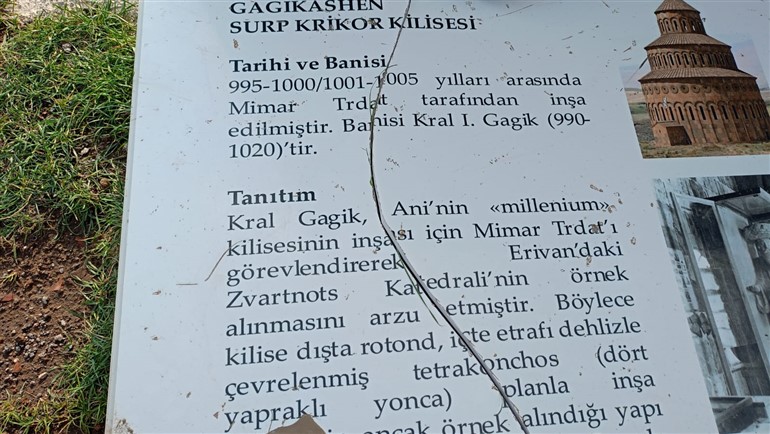 GAGIKASHEN
SURP KRİKOR KİLİSESİ
Tarihi ve Banisi
995-1000/1001-1005 yılları arasında
Mimar Trdat tarafından inşa
edilmiştir. Banisi Kral I. Gagik (990-
1020)'tir.
Tanıtım
Kral Gagik, Ani'nin «millenium»
kilisesinin inşası için Mimar Trdat'ı
görevlendirerek Erivan'daki
Zvartnots Katedrali'nin örnek
alınmasını arzu etmiştir. Böylece
kilise dışta rotond, içte etrafı dehlizle
çevrelenmiş tetrakonchos (dört
yapraklı yonca) planla inşa
ancak örnek alındığı yapı